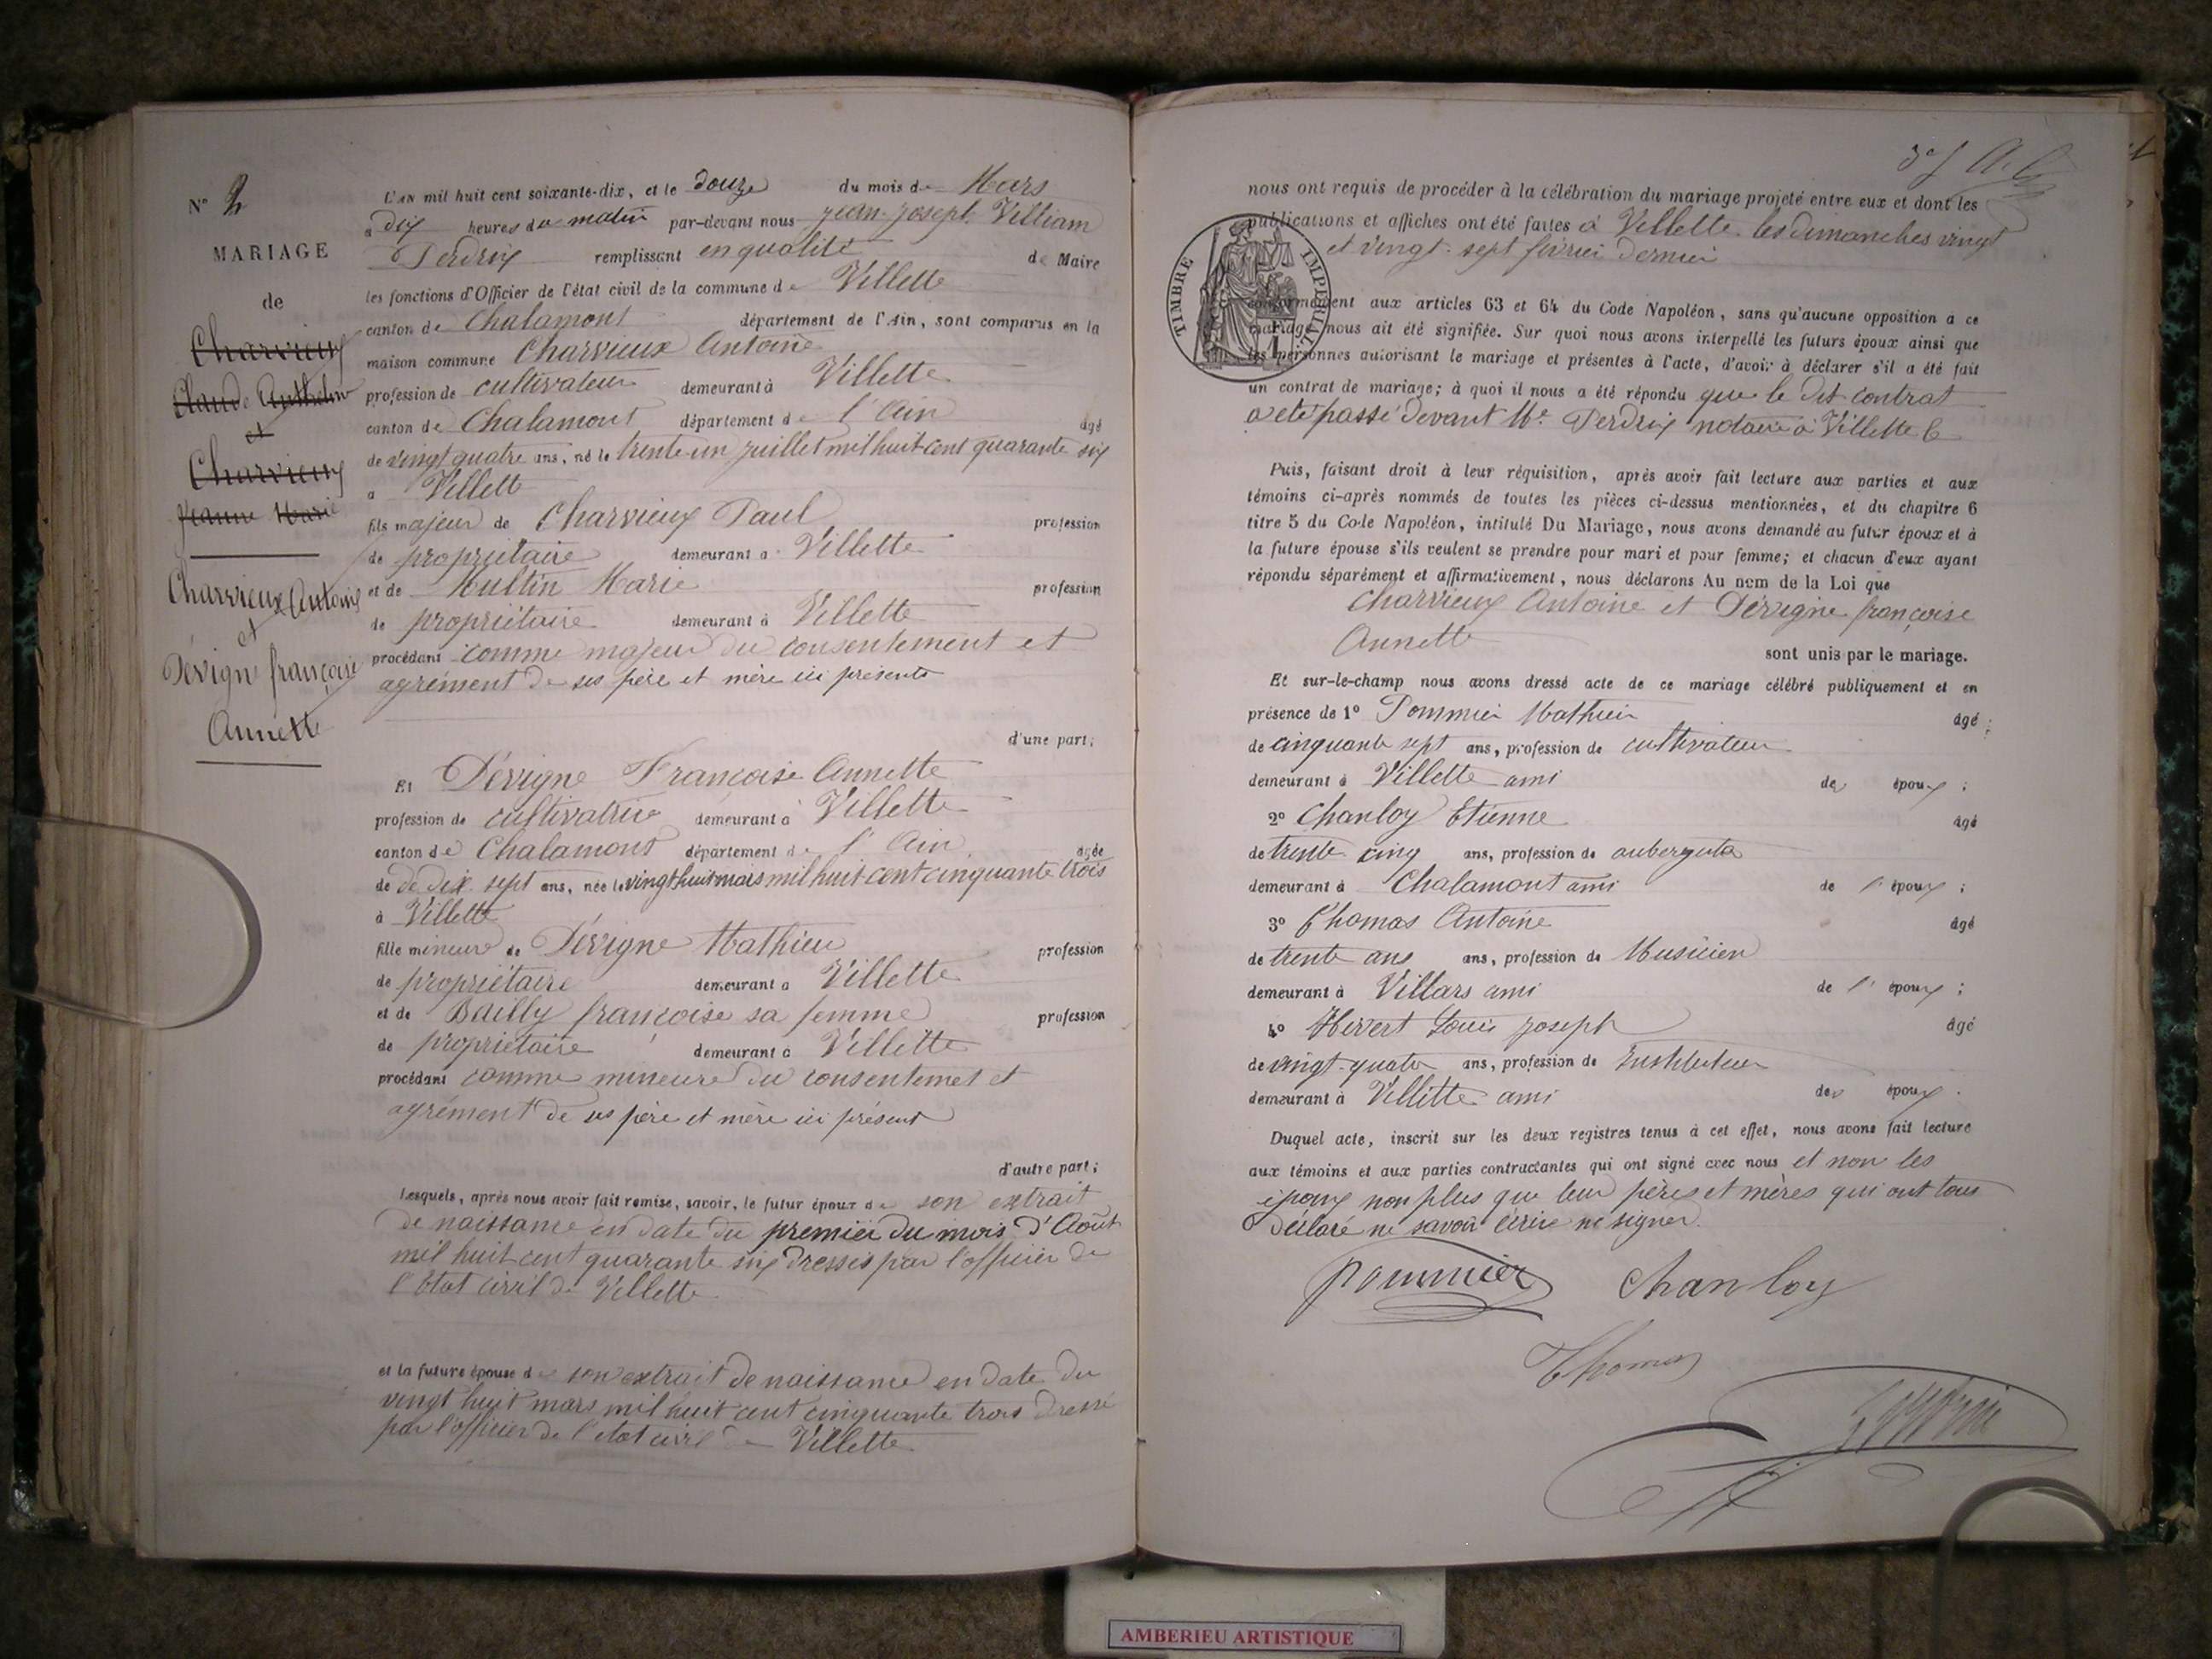 N° 2
MARIAGE
de
Charvieux
Claude Anthelme
et
Charvieux
Jeanne Marie
Charvieux Antoine
et
Dévigne françoise
Annette
L'AN mil huit cent soixante-dix, et le douze du mois de Mars
à dix heures du matin par-devant nous Jean-Joseph Villiam
Perdrix remplissant en qualité de Maire
les fonctions d'Officier de l'état civil de la commune de Villette
canton de Chalamont département de l'Ain, sont comparus en la
maison commune Charvieux Antoine
profession de cultivateur demeurant à Villette
canton de Chalamont département de l'Ain âgé
de vingt quatre ans, né le trente-un juillet mil huit-cent quarante six
à Villett
fils majeur de Charvieux Paul profession
de propriétaire demeurant à Villette
et de Multin Marie profession
de propriétaire demeurant à Villette
procédant comme majeur du consentement et
agrément de ses père et mère ici présents
d'une part;
Et Dévigne Françoise Annette
profession de cultivatrice demeurant à Villette
canton de Chalamont département de l'Ain âgée
de de dix-sept ans, née le vingt huit mars mil huit cent cinquante trois
à Villette
fille mineure de Dévigne Mathieu profession
de propriétaire demeurant à Villette
et de Bailly françoise sa femme profession
de propriétaire demeurant à Villette
procédant comme mineure du consentemet et
agrément de ses père et mère ici présent
d'autre part;
Lesquels, après nous avoir fait remise, savoir, le futur époux de son extrait
de naissance en date du premier du mois d'Août
mil huit-cent quarante six dressés par l'officier de
l'état civil de Villette
et la future épouse de son extrait de naissance en date du
vingt huit mars mil huit cent cinquante trois dressé
par l'officier de l'état civil de Villette
nous ont requis de procéder à la célébration du mariage projeté entre eux et dont les
publications et affiches ont été faites à Villette les dimanches vingt
et vingt-sept février dernier
TIMBRE IMPERIAL
conformément aux articles 63 et 64 du Code Napoléon, sans qu'aucune opposition a ce
mariage nous ait été signifiée. Sur quoi nous avons interpellé les futurs époux ainsi que
les personnes autorisant le mariage et présentes à l'acte, d'avoir à déclarer s'il a été fait
un contrat de mariage; à quoi il nous a été répondu que le dit contrat
a été passé devant Me Perdrix notaire à Villette
Puis, faisant droit à leur réquisition, après avoir fait lecture aux parties et aux
témoins ci-après nommés de toutes les pièces ci-dessus mentionnées, et du chapitre 6
titre 5 du Code Napoléon, intitulé Du Mariage, nous avons demandé au futur époux et à
la future épouse s'ils veulent se prendre pour mari et pour femme; et chacun d'eux ayant
répondu séparément et affirmativement, nous déclarons Au nom de la Loi que
Charvieux Antoine et Dévigne françoise
Annette
sont unis par le mariage.
Et sur-le-champ nous avons dressé acte de ce mariage célébré publiquement et en
présence de 1° Pommier Mathieu âgé
de cinquante sept ans, profession de cultivateur
demeurant à Villette ami des époux;
2° Chanloy Etienne âgé
de trente cinq ans, profession de aubergiste
demeurant à Chalamont ami de l'époux;
3° Thomas Antoine âgé
de trente ans ans, profession de Musicien
demeurant à Villars ami de l'époux;
4° Hevert Louis Joseph âgé
de vingt-quatre ans, profession de Instituteur
demeurant à Villette ami des époux.
Duquel acte, inscrit sur les deux registres tenus à cet effet, nous avons fait lecture
aux témoins et aux parties contractantes qui ont signé avec nous et non les
époux non plus que leur pères et mères qui ont tous
déclaré ne savoir écrire ni signer.
Pommier Chanloy
Thomas
AMBERIEU ARTISTIQUE